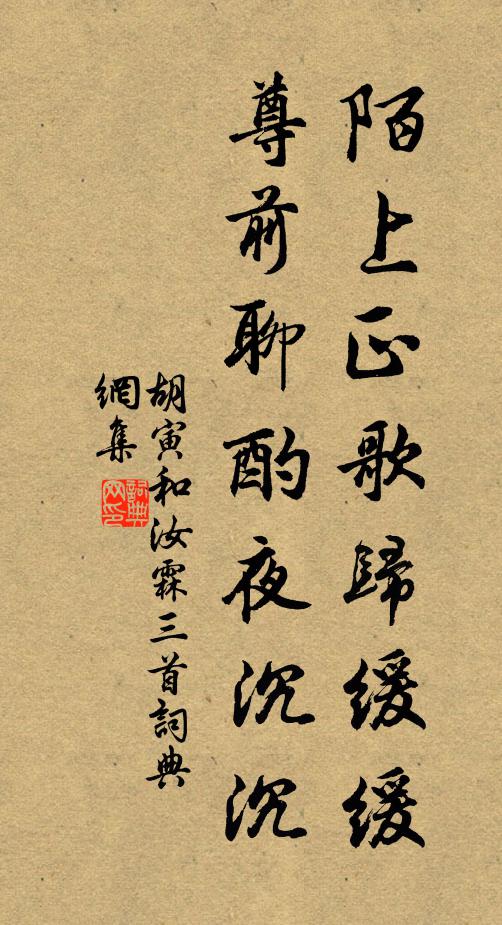 陌上正歌歸緩緩
尊前聊酌夜沉沉
胡寅和汝霖三首詞典
網集
詞典
网印